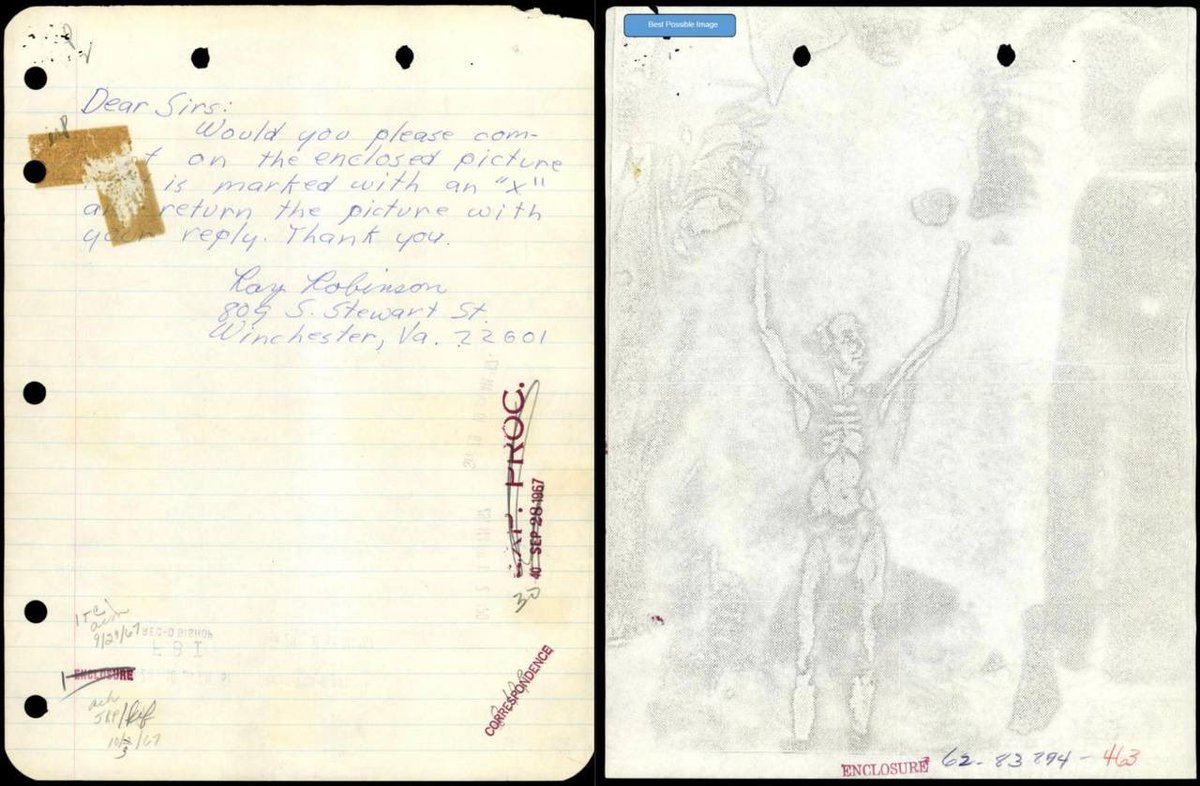 Dear Sirs:
Would you please com-
t on the enclosed picture
is marked with an "x"
return the picture with
reply. Thank you.
Ray Robinson
809 S. Stewart St.
Winchester, Va. 22601
PROC.
40 SEP 28 1967
30
9/29/67
REC-D BISHOP
F B I
ENCLOSURE
CORRESPONDENCE
Best Possible Image
ENCLOSURE 62-83894-463